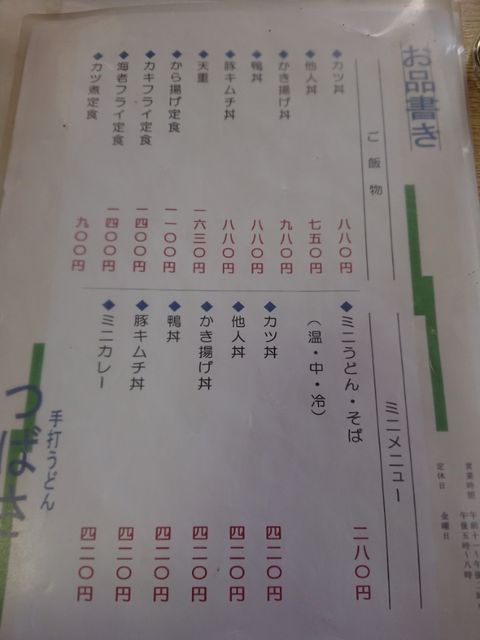 お品書き
ご飯物
カツ丼 八八〇円
他人丼 七五〇円
かき揚げ丼 九八〇円
鴨丼 八八〇円
豚キムチ丼 八八〇円
天重 一六三〇円
から揚げ定食 一一〇〇円
カキフライ定食 一四〇〇円
海老フライ定食 一四〇〇円
カツ煮定食 九〇〇円
ミニメニュー
ミニうどん・そば 二八〇円
（温・中・冷）
カツ丼 四二〇円
他人丼 四二〇円
かき揚げ丼 四二〇円
鴨丼 四二〇円
豚キムチ丼 四二〇円
ミニカレー 四二〇円
営業時間 午前十一〜午後
午後五時〜八時
定休日 金曜日
手打うどん
つばさ